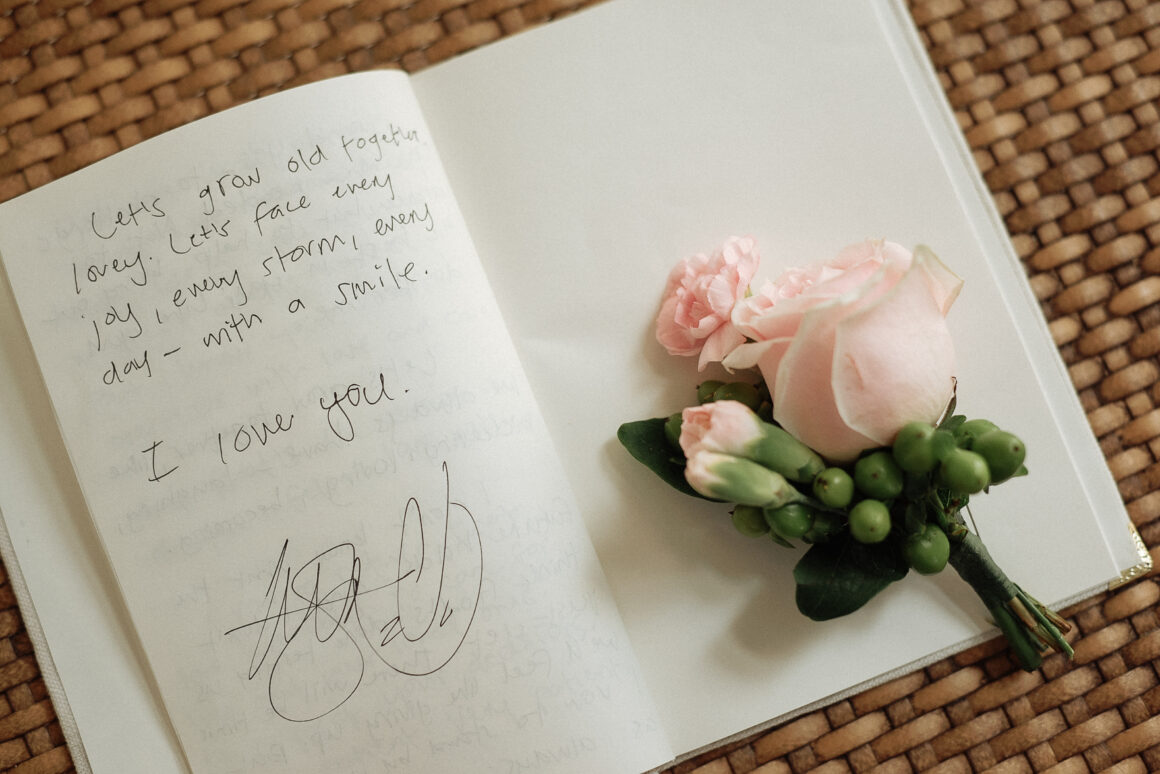 Let's grow old together
lovey. Let's face every
joy, every storm, every
day - with a smile.
I love you.